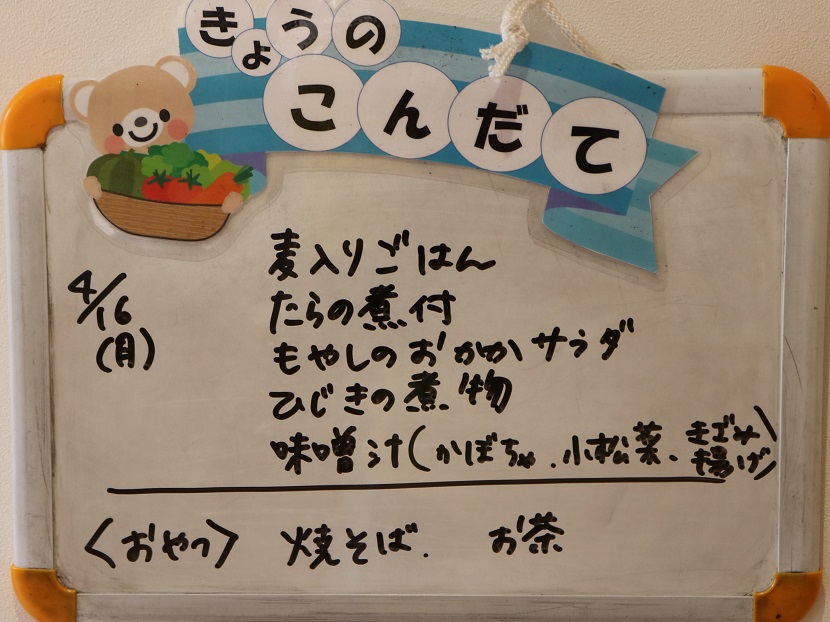 きょうの
こんだて
4/16
(月)
麦入りごはん
たらの煮付
もやしのおかかサラダ
ひじきの煮物
味噌汁(かぼちゃ、小松菜、きざみ揚げ)
<おやつ> 焼そば. お茶